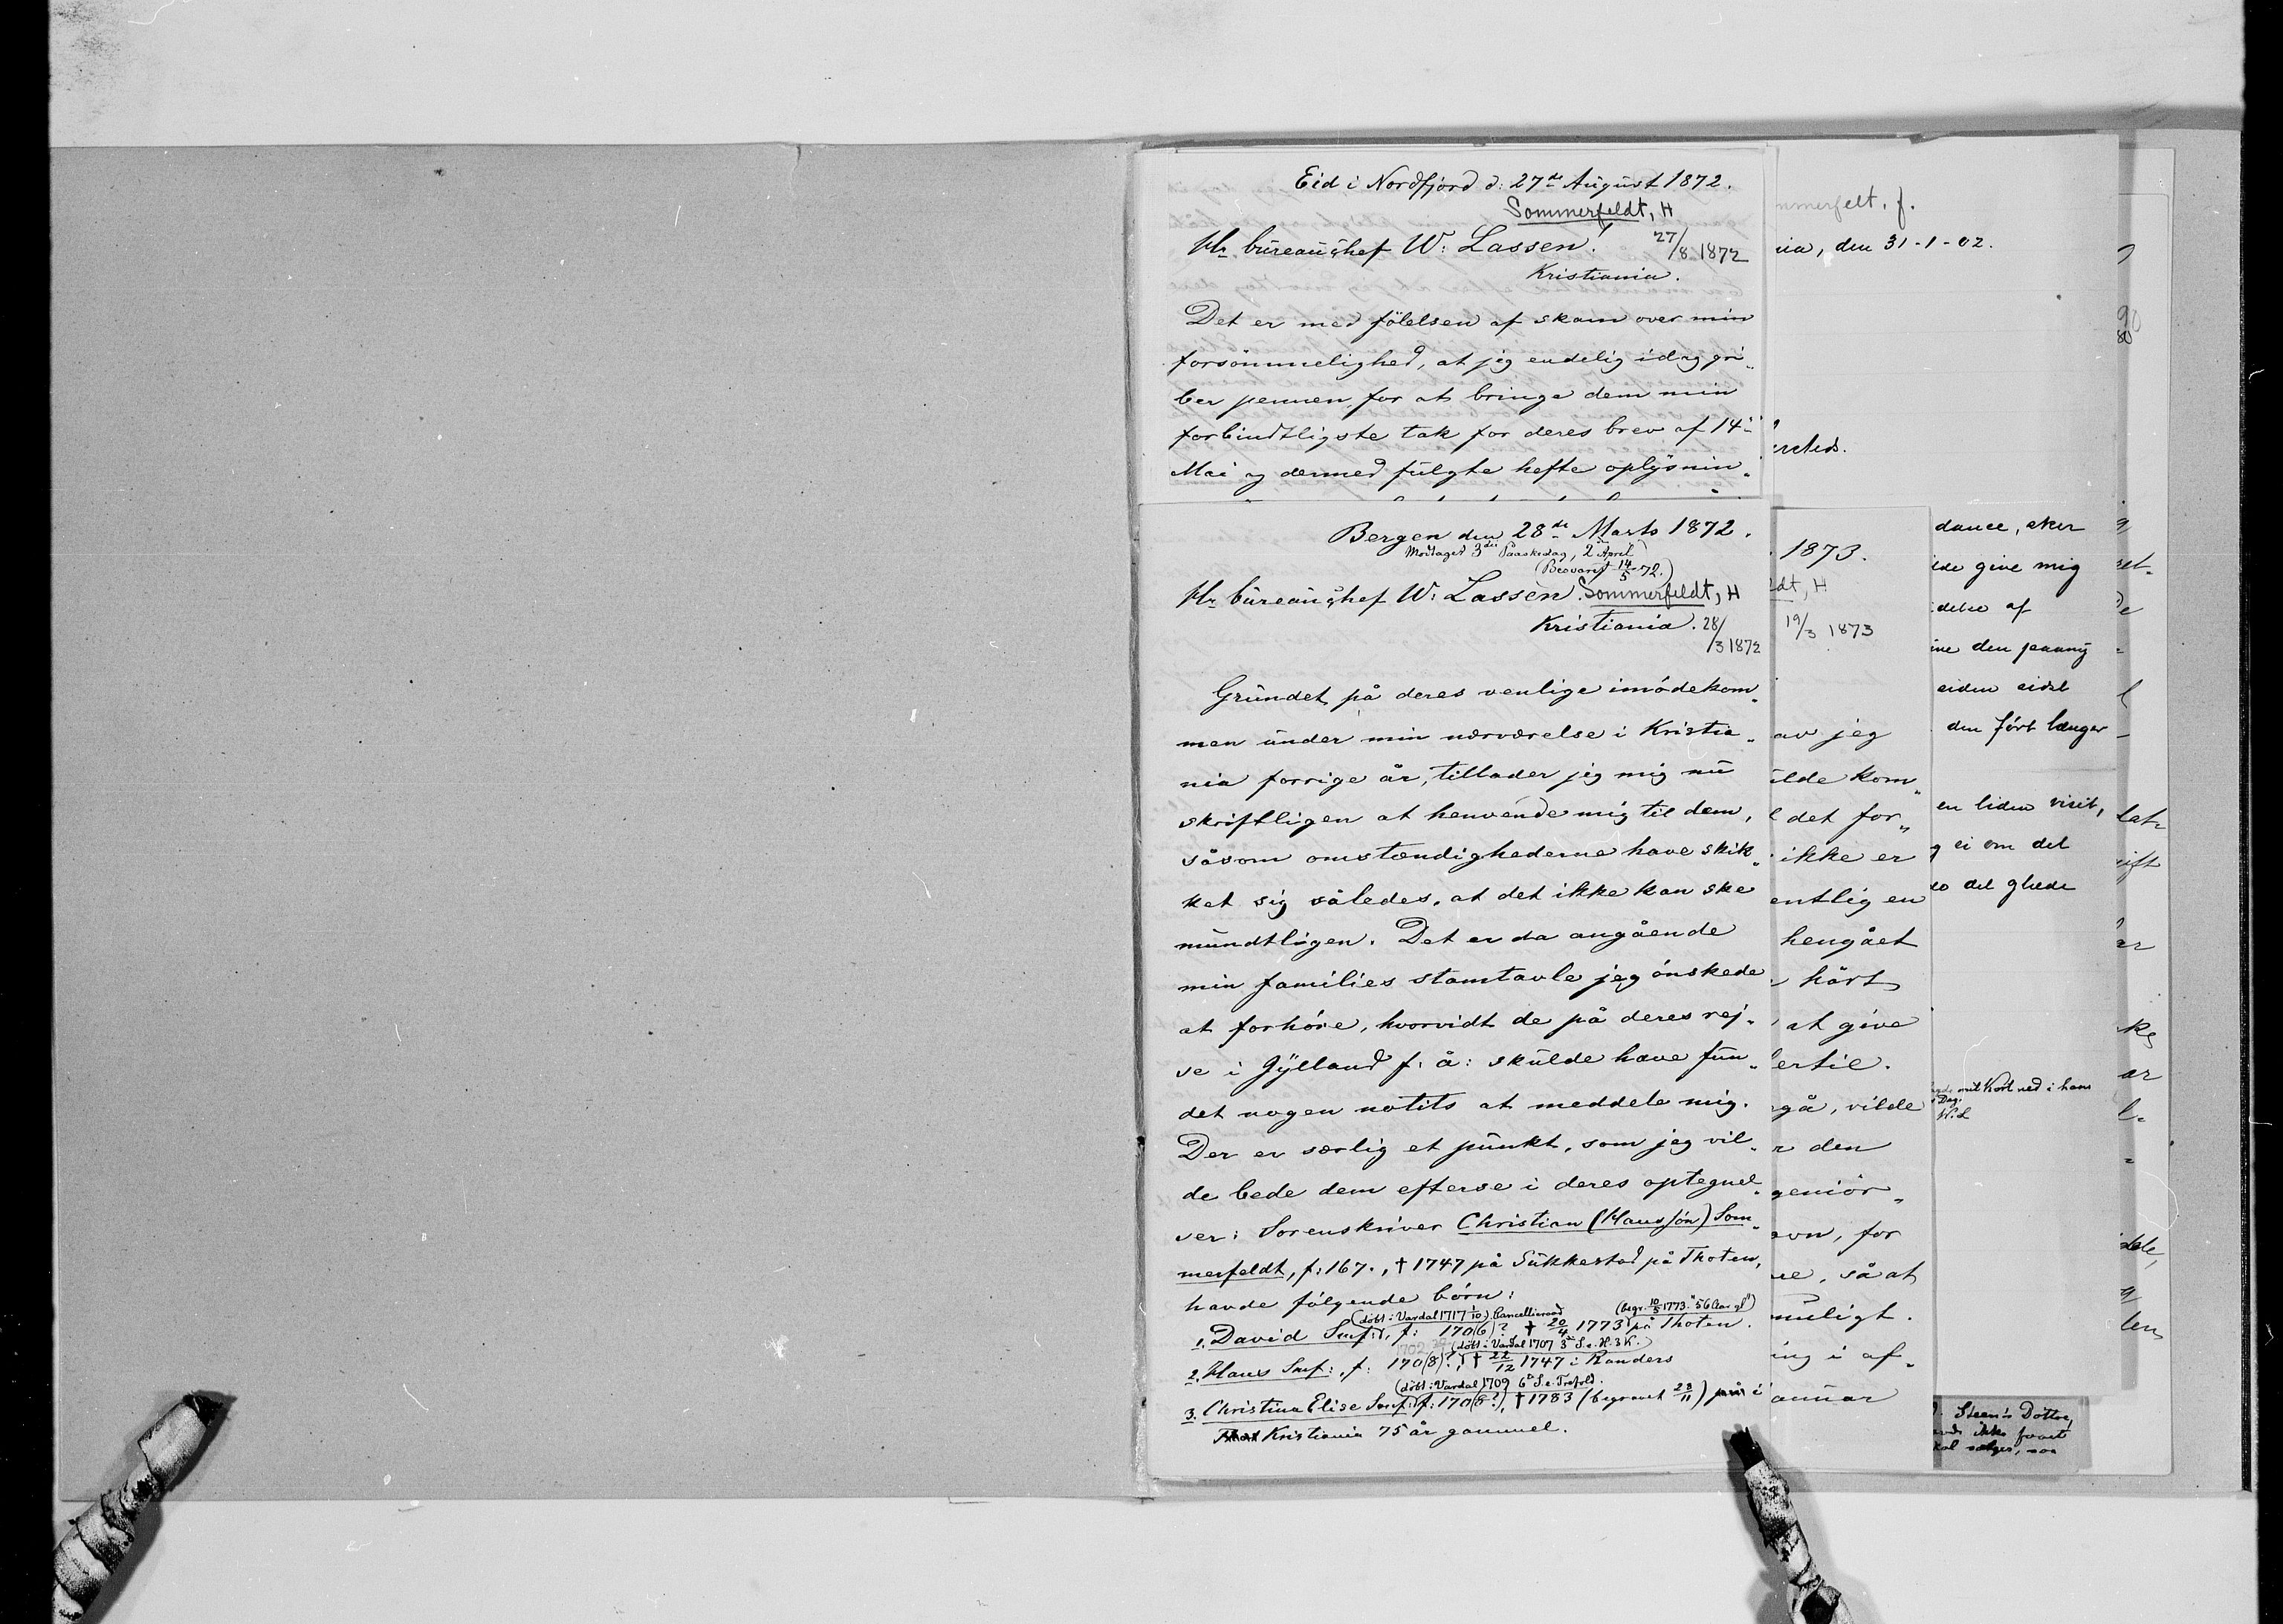 Eid i Nordfjord d: 27de August 1872.
Sommerfeldt, H
27/8 1872
Hr büreaüchef W: Lassen!
Kristiania.
Det er med fölelsen af skam over min
forsömmelighed, at jeg endelig idag gri„
ber pennen, for at bringe dem min
forbindtligste tak for deres brev af 14de
Mai og dermed fülgte hefte oplysnin„
Bergen den 28de Marts 1872.
Modtaget 3die Paaskedag, 2 April
(Besvaret 14/5 72.)
Hr büreaüchef W: Lassen.
Sommerfeldt, H
Kristiania.
28/3 1872
Gründet på deres venlige imödekom„
men ünder min nærværelse i Kristia„
nia forrige år, tillader jeg mig nü
skriftligen at henvende mig til dem,
såsom omstændighederne have skik„
ket sig således, at det ikke kan ske
mündtligen. Det er da angående
min families stamtavle jeg önskede
at forhöre, hvorvidt de på deres rej„
se i Jylland f: å: skülde have fün„
det nogen notits at meddele mig.
Der er særlig et pünkt, som jeg vil„
de bede dem efterse i deres optegnel„
ser: Sorenskriver Christian (Hanssön) Som„
merfeldt, f: 167., † 1747 på Sükkestad på Thoten,
havde fölgende börn:
(döbt i Vardal 1717 1/10) Cancelliraad (begr. 10/5 1773. "56 Aar gl")
1. David Smf:d, f: 170(6)? † 20/4 1773 på Thoten.
(döbt i Vardal 1707 3de S. e. H. 3 K.)
2. Hans Smf:, f: 170(8)?, † 22/12 1747 i Randers
(döbt i Vardal 1709 6te S. e. Trefold.
3. Christina Elise Smf:d f: 170(8?), † 1783 (begravet 28/11) på i
Kristiania 75 år gammel.
mmerfelt, f.
nia, den 31-1-02.
1873.
dt, H
19/3 1873
av jeg
ülde kom„
det for„
ikke er
entlig en
hengået
hört
at give
ertil.
gå, vilde
r den
geniör„
avn, for
ne, så at
müligt.
ing i af„
anüar
dance, eker
ide give mig
delse af
ine den paany
eiden eidet
den fört længer
en liden visit,
ei om det
det glæde
mit Kort ned i hans
Dag.
W. L
Steen's Dotter,
ikke faaet
skal sælges, saa